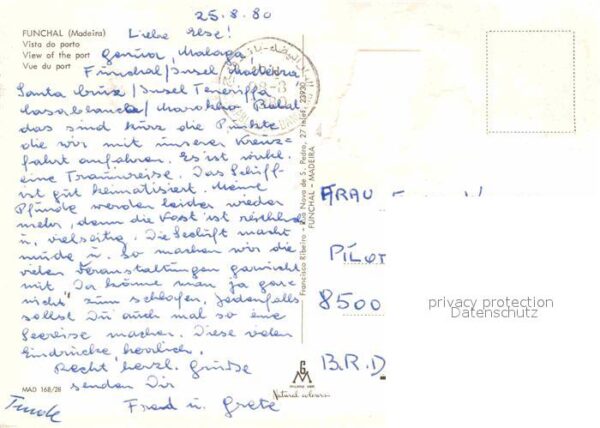 25.8.80
FUNCHAL (Madeira)
Vista do porto
View of the port
Vue du port
Liebe Ilse!
Genua, Malaga,
Funchal/Insel Madeira
Santa Cruz/Insel Teneriffa
Casablanca/Marokko
das sind kurz die Punkte
die wir mit unserer Kreuz-
fahrt anfahren. Es ist wirkl.
eine Traumreise. Das Schiff
ist gut klimatisiert. Meine
Pfunde werden leider wieder
mehr, denn die Kost ist reichlich
u. vielseitig. Die Seeluft macht
müde u. so machen wir die
vielen Veranstaltungen gar nicht
mit. Da käme man ja gar
nicht zum schlafen. Jedenfalls
sollst Du auch mal so eine
Seereise machen. Diese vielen
Eindrücke herrlich.
Recht herzl. Grüße
senden Dir
Fred u. Grete
MAD 168/28
Francisco Ribeiro - Rua Nova de S. Pedro, 27 Telef. 23930
FUNCHAL - MADEIRA
FRAU
PILOT
8500
B.R.D
privacy protection
Datenschutz
GM
Natural colours